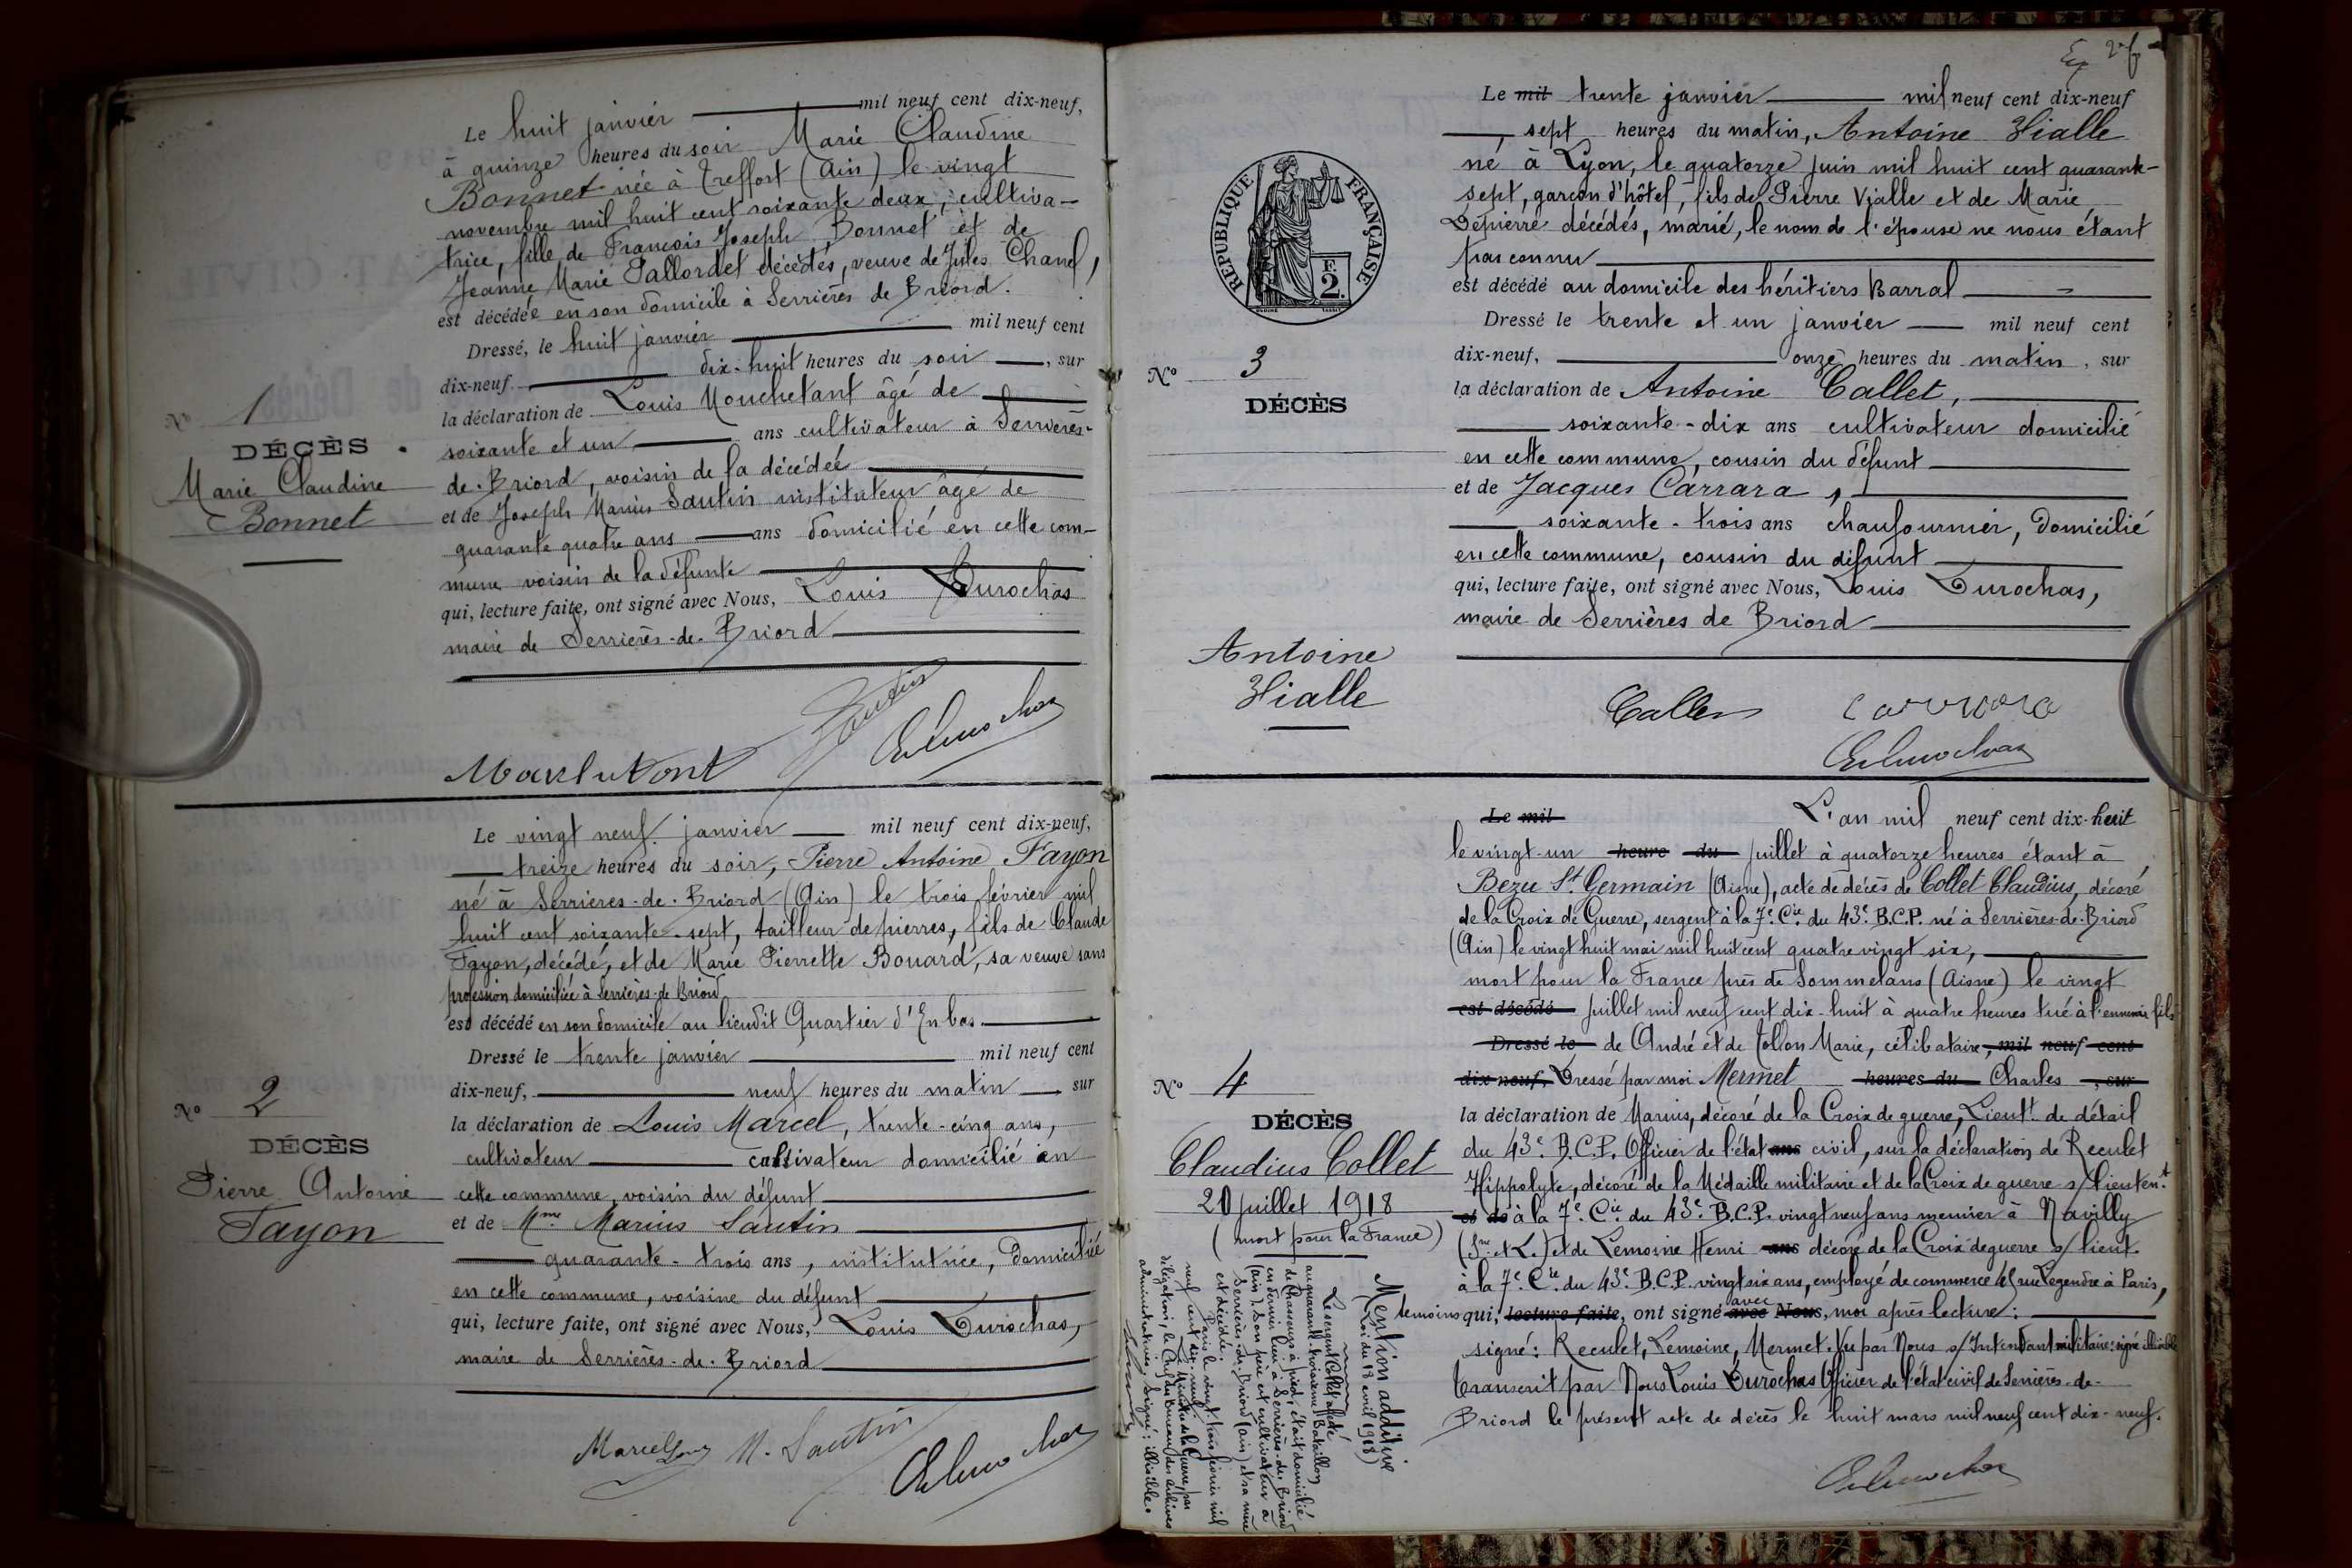 Le huit janvier mil neuf cent dix-neuf,
à quinze heures du soir Marie Claudine
Bonnet née à Treffort (Ain) le vingt
novembre mil huit cent soixante deux, cultiva-
trice, fille de François Joseph Bonnet et de
Jeanne Marie Pallordet décédés, veuve de Jules Chanel,
est décédée en son domicile à Serrières de Briord.
Dressé, le huit janvier mil neuf cent
dix-neuf dix-huit heures du soir, sur
la déclaration de Louis Mouchetant âgé de
soixante et un ans cultivateur à Serrières-
de-Briord, voisin de la décédée
et de Joseph Marius Sautin instituteur âgé de
quarante quatre ans ans domicilié en cette com-
mune voisin de la défunte
qui, lecture faite, ont signé avec Nous, Louis Durochas
maire de Serrières-de-Briord
No 1
DÉCÈS
Marie Claudine
Bonnet
Le vingt neuf janvier mil neuf cent dix-neuf,
treize heures du soir, Pierre Antoine Fayon
né à Serrières-de-Briord (Ain) le trois février mil
huit cent soixante-sept, tailleur de pierres, fils de Claude
Fayon, décédé, et de Marie Pierrette Bouard, sa veuve sans
profession domiciliée à Serrières-de-Briord
est décédé en son domicile au lieudit Quartier d'En bas
Dressé le trente janvier mil neuf cent
dix-neuf, neuf heures du matin, sur
la déclaration de Louis Marcel, trente-cinq ans,
cultivateur cultivateur domicilié en
cette commune, voisin du défunt
et de Mme Marius Sautin
quarante-trois ans, institutrice, domiciliée
en cette commune, voisine du défunt
qui, lecture faite, ont signé avec Nous, Louis Durochas,
maire de Serrières-de-Briord
M. Sautin
No 2
DÉCÈS
Pierre Antoine
Fayon
Le mil trente janvier mil neuf cent dix-neuf
, sept heures du matin, Antoine Vialle
né à Lyon, le quatorze juin mil huit cent quarante-
sept, garçon d'hôtel, fils de Pierre Vialle et de Marie
Dépierré décédés, marié, le nom de l'épouse ne nous étant
pas connu
est décédé au domicile des héritiers Barral
Dressé le trente et un janvier mil neuf cent
dix-neuf, onze heures du matin, sur
la déclaration de Antoine Callet,
soixante-dix ans cultivateur domicilié
en cette commune, cousin du défunt
et de Jacques Carrara,
soixante-trois ans chaufournier, domicilié
en cette commune, cousin du défunt
qui, lecture faite, ont signé avec Nous, Louis Durochas,
maire de Serrières de Briord
Callet Carrara
RÉPUBLIQUE FRANÇAISE
F.
2.
No 3
DÉCÈS
Antoine
Vialle
Le mil L'an mil neuf cent dix-huit
le vingt-un heure du juillet à quatorze heures étant à
Bezu St Germain (Aisne), acte de décès de Collet Claudius, décoré
de la Croix de Guerre, sergent à la 7e Cie du 43e B.C.P. né à Serrières-de-Briord
(Ain) le vingt huit mai mil huit cent quatre vingt six,
mort pour la France près de Sommelans (Aisne) le vingt
est décédé juillet mil neuf cent dix-huit à quatre heures tué à l'ennemi fils
Dressé le de André et de Tollon Marie, célibataire, mil neuf cent
dix-neuf, Dressé par moi Mermet heures du Charles, sur
la déclaration de Marius, décoré de la Croix de guerre, Lieutt de détail
du 43e B.C.P. Officier de l'état ans civil, sur la déclaration de Reculet
Hippolyte, décoré de la Médaille militaire et de la Croix de guerre s/lieuten.t
et de à la 7e Cie du 43e B.C.P. vingt neuf ans meunier à Navilly
(Sne et L.) et de Lemoine Henri ans décoré de la Croix de guerre s/lieut.
à la 7e Cie du 43e B.C.P. vingt six ans, employé de commerce 45 rue Legendre à Paris,
témoins qui, lecture faite, ont signé avec avec Nous, moi après lecture :
signé : Reculet, Lemoine, Mermet. Vu par Nous s/Intendant militaire : signé illisible
Transcrit par Nous Louis Durochas Officier de l'état civil de Serrières-de-
Briord le présent acte de décès le huit mars mil neuf cent dix-neuf.
No 4
DÉCÈS
Claudius Collet
20 juillet 1918
(mort pour la France)
Mention additive
(Loi du 18 avril 1918)
Le sergent Collet affecté
au quarante-troisième Bataillon
de Chasseurs à pied, était domicilié
en dernier lieu à Serrières-de-Briord
(ain). Son père est cultivateur à
Serrières-de-Briord (ain) et sa mère
est décédée.
Paris le vingt trois février mil
neuf cent dix-neuf.
Le Ministre de la Guerre, par
délégation, le Chef du Bureau des archives
administratives, Signé : illisible.